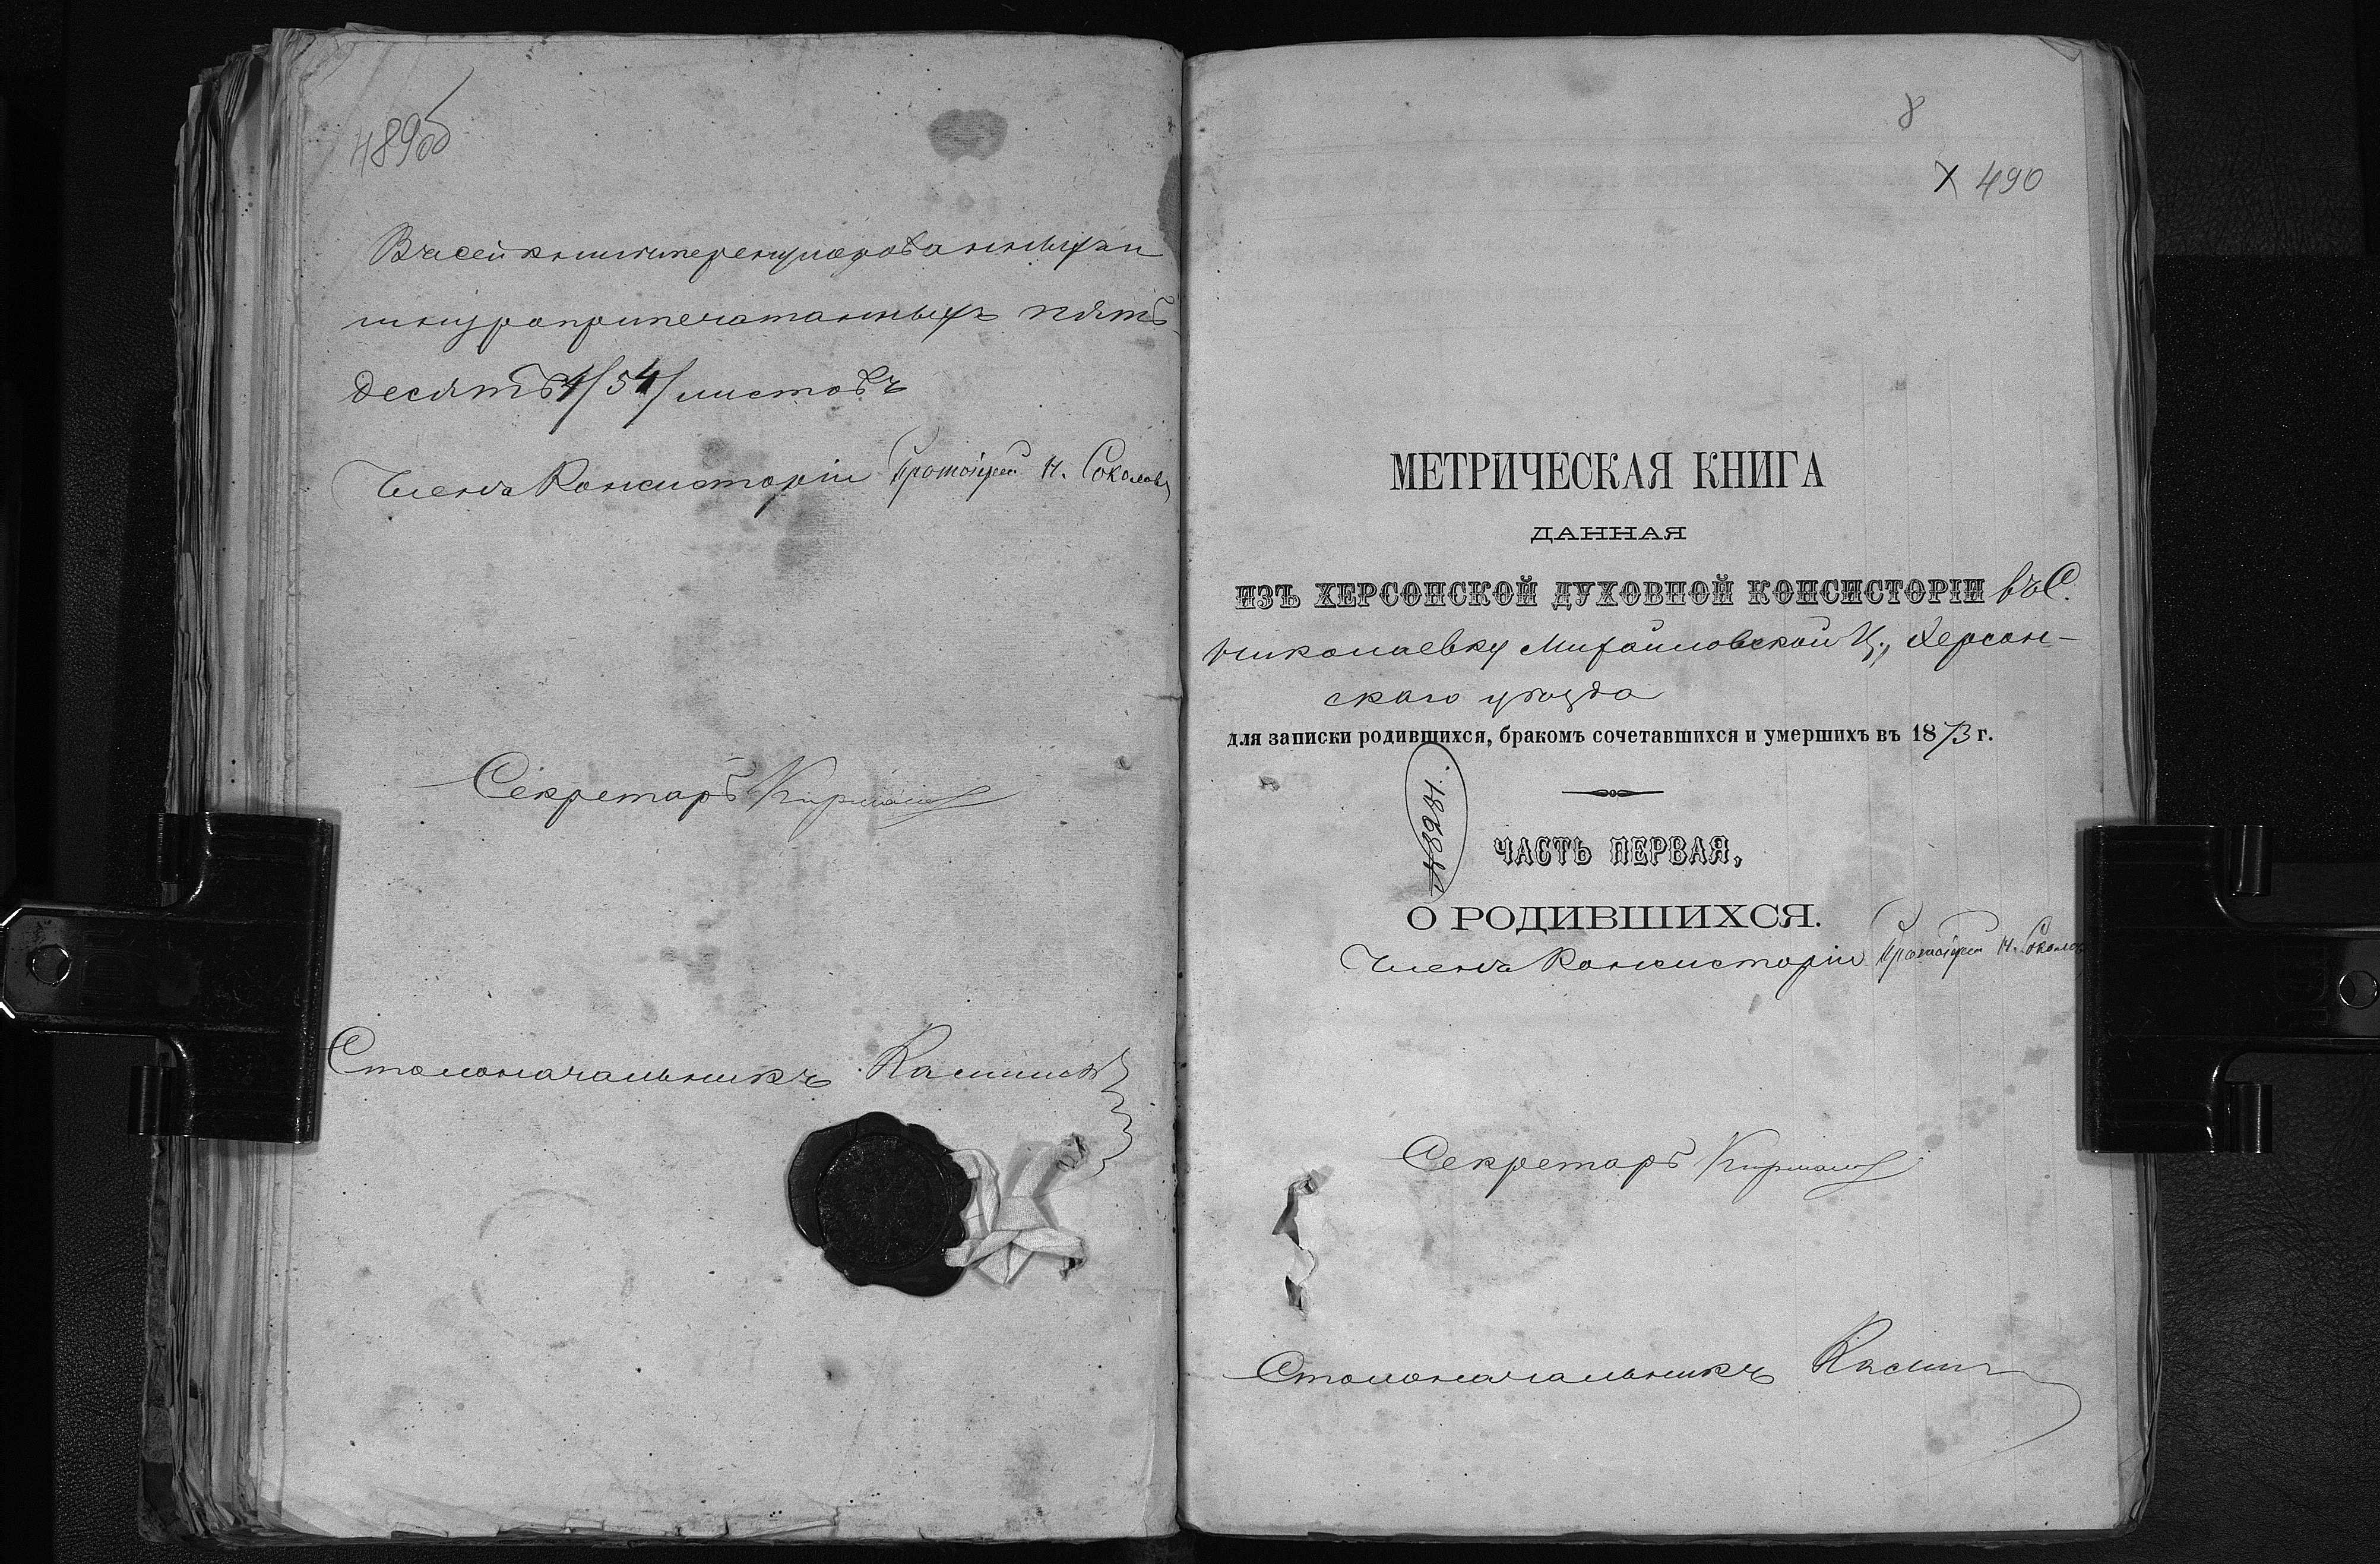 489об
Въ сей книге перенумерованныхъ и
шнуроприпечатанныхъ пять
десятъ 4/54/ листовъ
Членъ Консисторіи Протоіерей Н. Соколовъ
Секретарь
Столоначальникъ
8
X 490
МЕТРИЧЕСКАЯ КНИГА
ДАННАЯ
ИЗЪ ХЕРСОНСКОЙ ДУХОВНОЙ КОНСИСТОРІИ въ С.
Николаевку Михайловской Ц., Херсон-
скаго уѣзда
для записки родившихся, бракомъ сочетавшихся и умершихъ въ 1873 г.
№ 8281.
ЧАСТЬ ПЕРВАЯ,
О РОДИВШИХСЯ.
Членъ Консисторіи Протоіерей Н. Соколовъ
Секретарь
Столоначальникъ